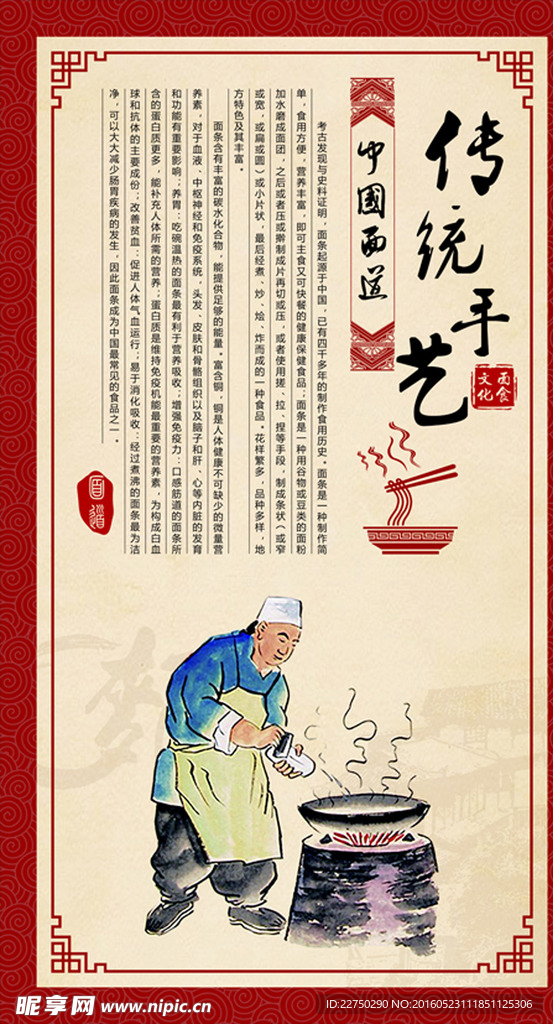 传统手艺
面食
文化
中國面道
考古发现与史料证明，面条起源于中国，已有四千多年的制作食用历史。面条是一种制作简
单，食用方便，营养丰富，即可主食又可快餐的健康保健食品；面条是一种用谷物或豆类的面粉
加水磨成面团，之后或者压或擀制成片再切或压，或者使用搓、拉、捏等手段，制成条状（或窄
或宽，或扁或圆）或小片状，最后经煮、炒、烩、炸而成的一种食品。花样繁多，品种多样，地
方特色及其丰富。
面条含有丰富的碳水化合物，能提供足够的能量。富含铜，铜是人体健康不可缺少的微量营
养素，对于血液、中枢神经和免疫系统，头发、皮肤和骨骼组织以及脑子和肝、心等内脏的发育
和功能有重要影响；养胃：吃碗温热的面条最有利于营养吸收；增强免疫力：口感筋道的面条所
含的蛋白质更多，能补充人体所需的营养；蛋白质是维持免疫机能最重要的营养素，为构成白血
球和抗体的主要成份；改善贫血：促进人体气血运行；易于消化吸收：经过煮沸的面条最为洁
净，可以大大减少肠胃疾病的发生，因此面条成为中国最常见的食品之一。
面道
昵享网 www.nipic.cn
ID:22750290 NO:20160523111851125306